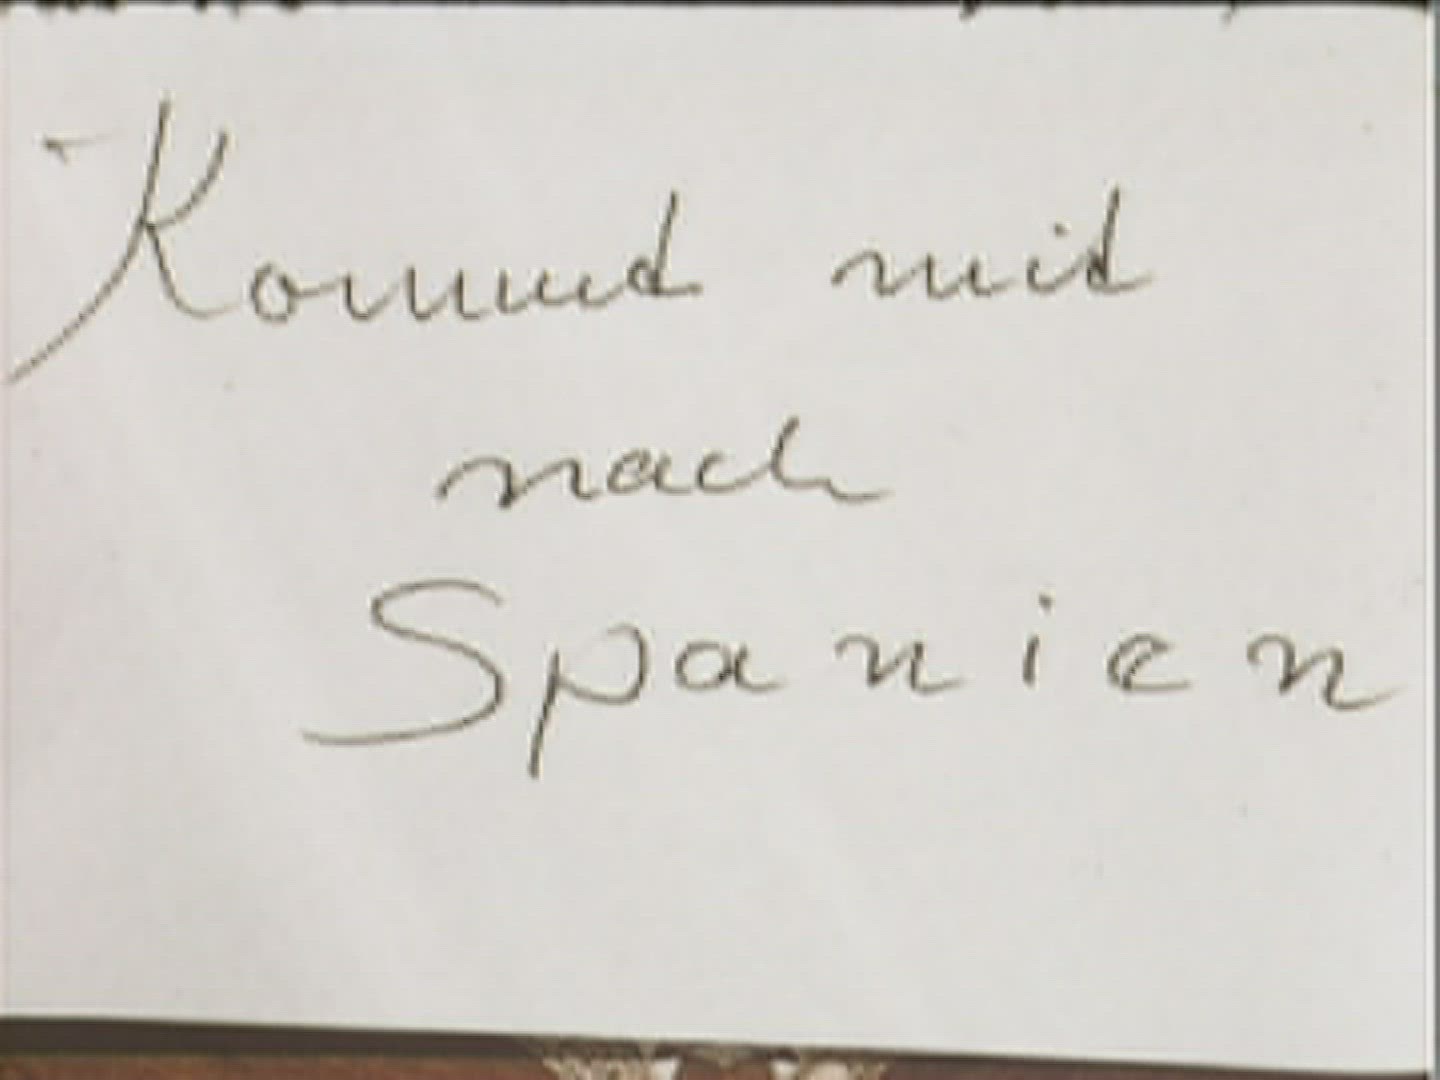 Kommt mit
nach
Spanien